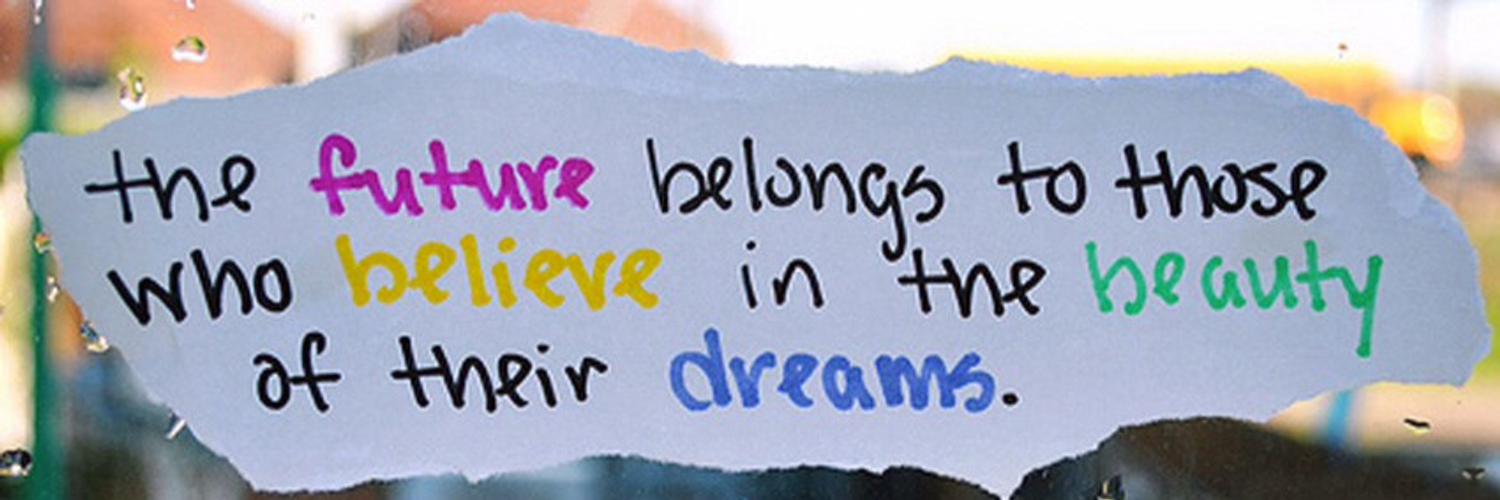 the future belongs to those
who believe in the beauty
of their dreams.